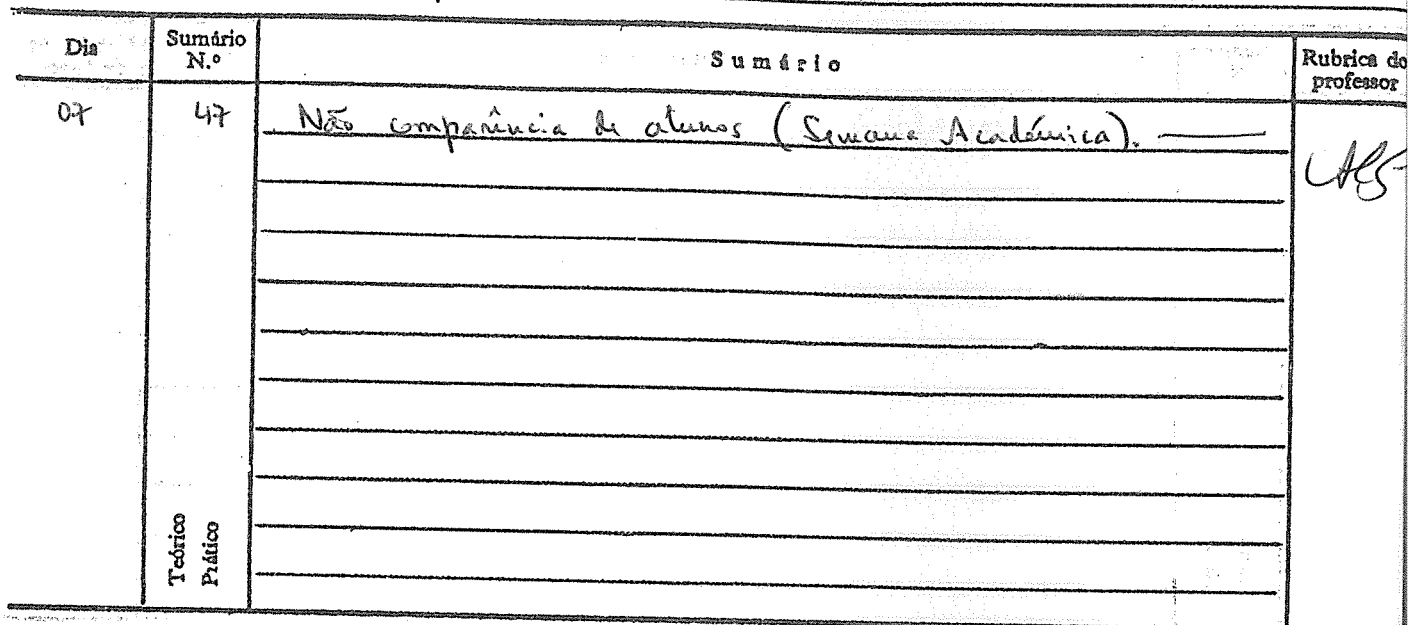 Dia
Sumário
N.º
Sumário
Rubrica do
professor
07
47
Não comparência de alunos (Semana Académica).
Teórico
Prático